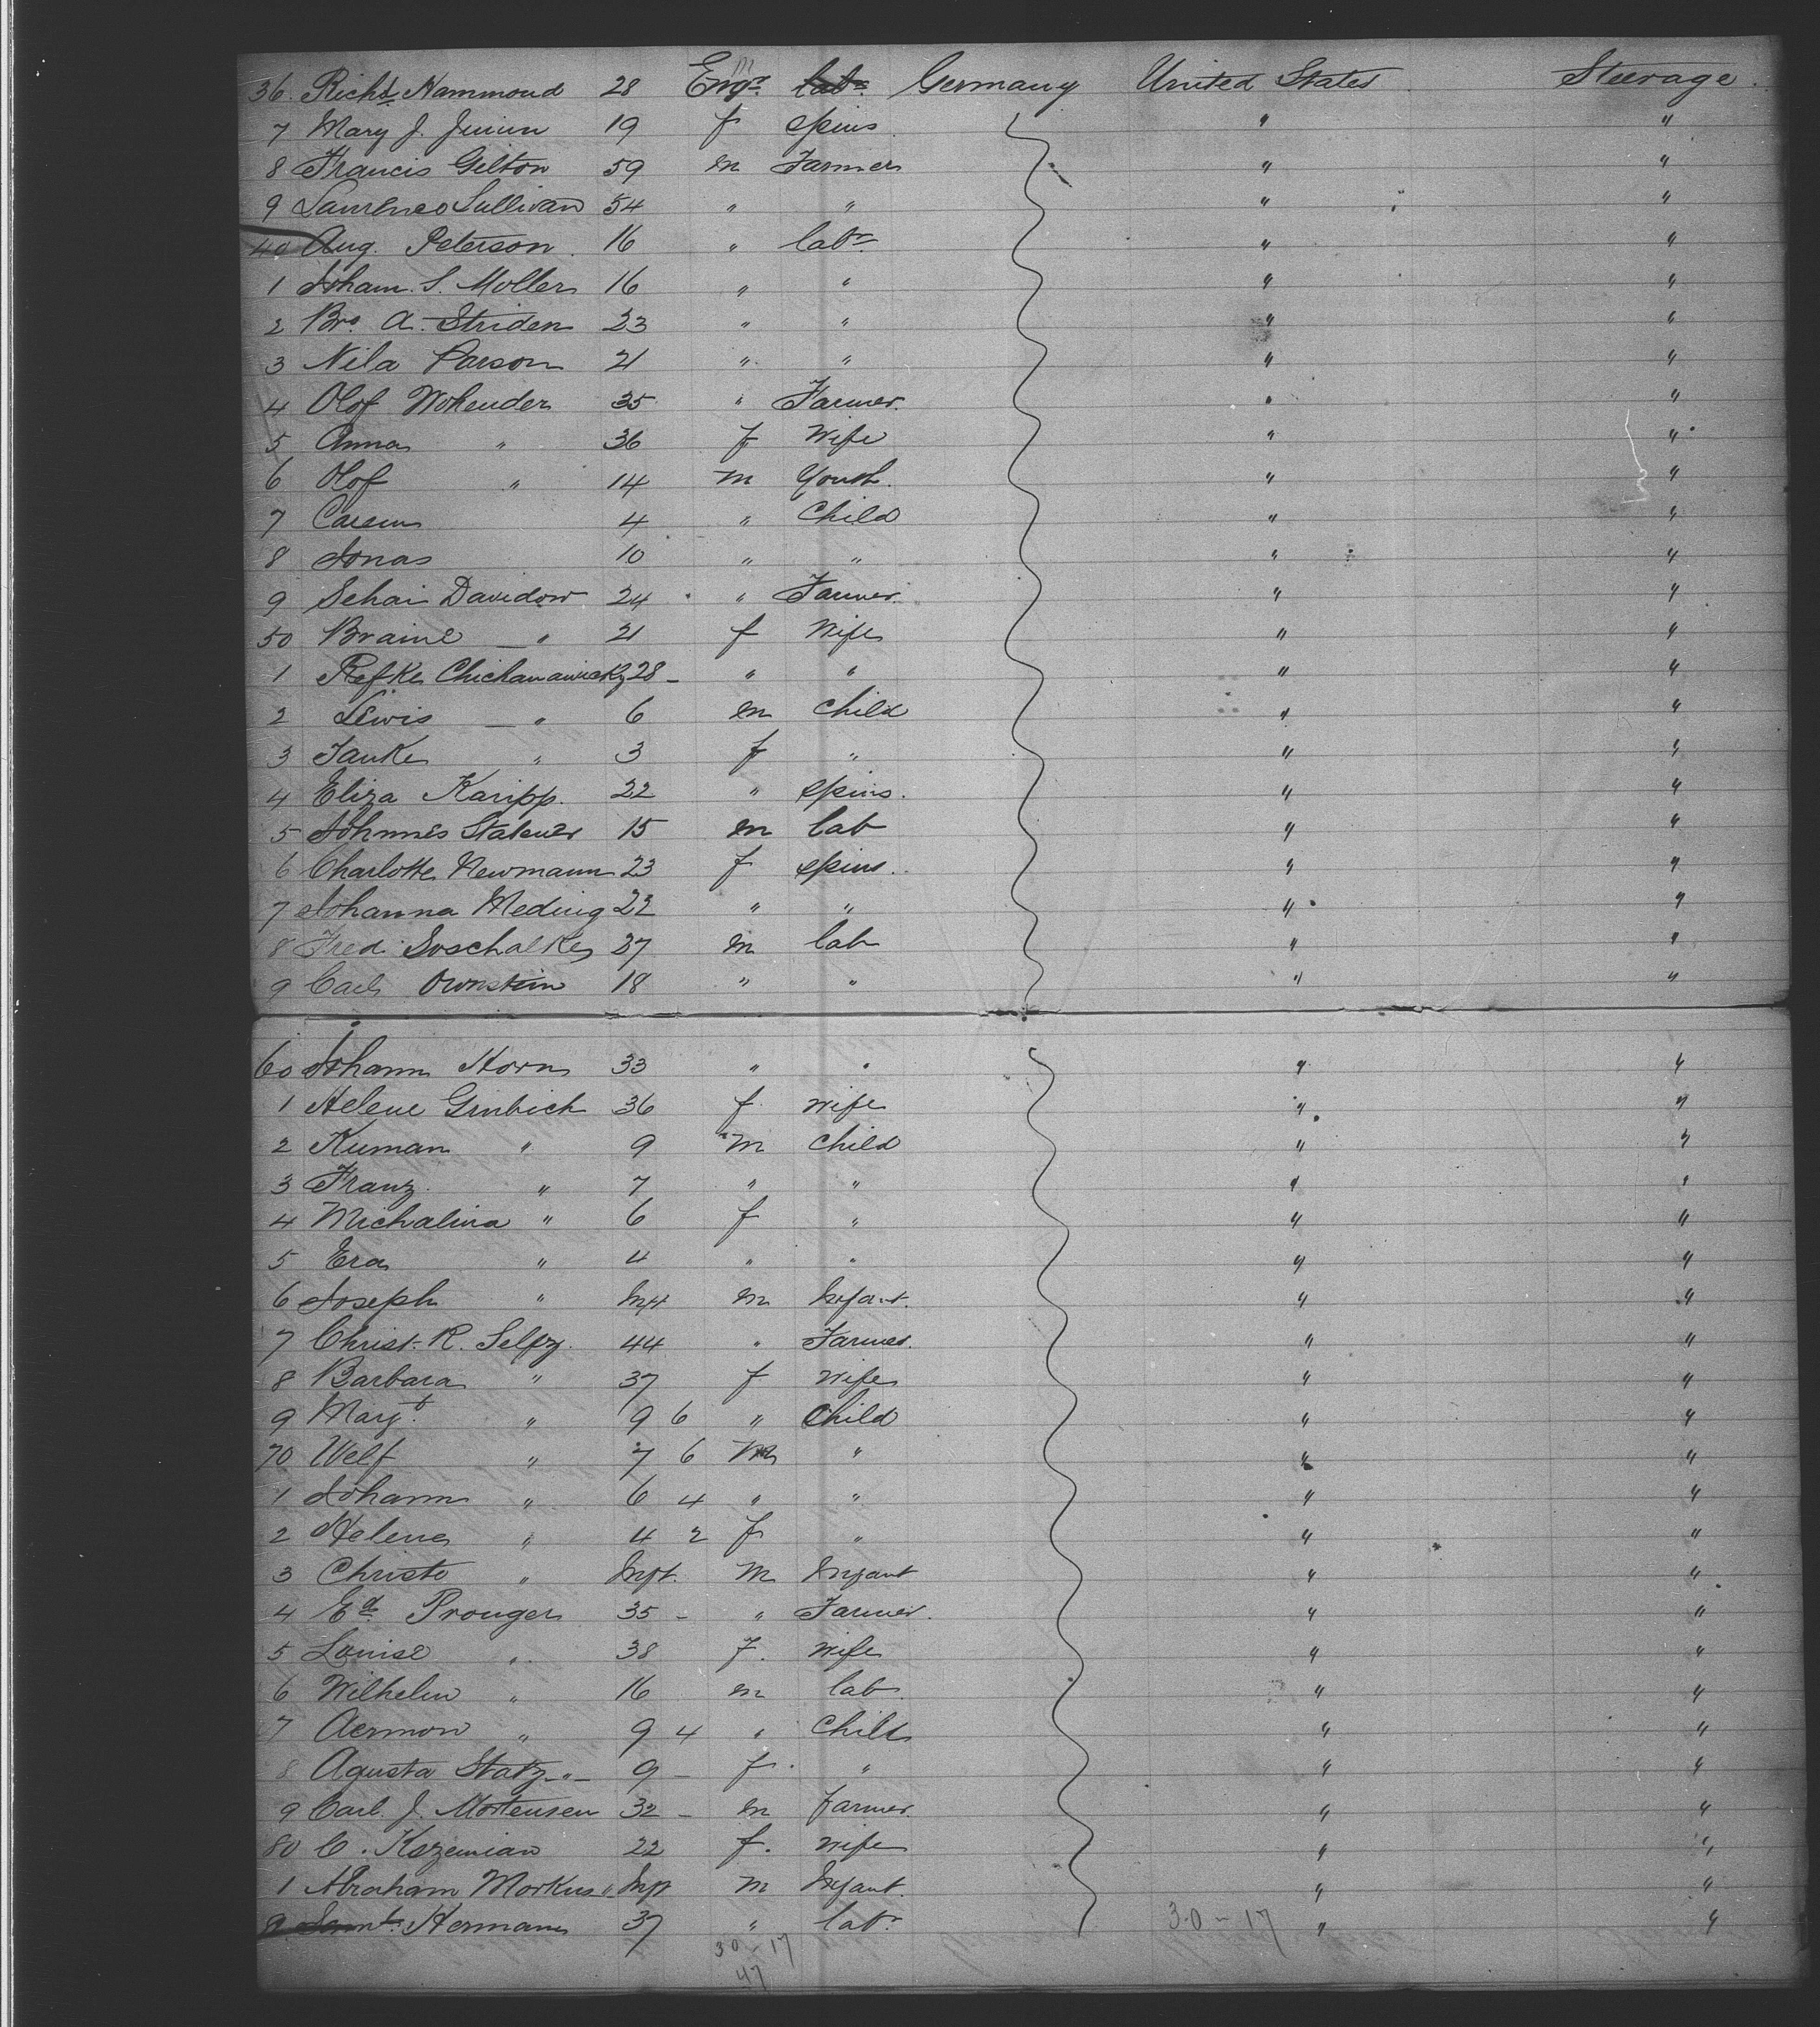 36. Richd Hammond 28 m Engr labr Germany United States Steerage.
7 Mary J. 19 f spins " "
8 Francis Gilton 59 m Farmer " "
9 Laurence Sullivan 54 " " " "
40 Aug. Peterson 16 " labr " "
1 Joham. S. Moller 16 " " " "
2 Bro. A. Striden 23 " " " "
3 Nila Parson 21 " " " "
4 Olof Wohender 35 " Farmer. " "
5 Anna " 36 f Wife " "
6 Olof " 14 m Youth. " "
7 4 " Child " "
8 Jonas 10 " " " "
9 Schai Davidow 24 " Farmer " "
50 Braine " 21 f Wife " "
1 Refke 28 " " " "
2 Lewis " 6 m Child " "
3 Tauke " 3 f " " "
4 Eliza Karipp. 22 " spins. " "
5 Johnnes 15 m lab " "
6 Charlotte Newmann 23 f spins. " "
7 Johanna Meding 22 " " " "
8 Fred Soschalke 27 m lab " "
9 Carl Ownstein 18 " " " "
60 Johann Horn 33 " " " "
1 Helene Ginbich 36 f wife " "
2 Kuman " 9 m Child " "
3 Franz " 7 " " " "
4 Michalina " 6 f " " "
5 Era " 4 " " " "
6 Joseph " Inft m Infant. " "
7 Christ. R. Selfz. 44 " Farmer. " "
8 Barbara " 37 f Wife " "
9 Margt. " 9 6 " Child " "
70 Welf " 7 6 m " " "
1 Johann " 6 4 " " " "
2 Helene " 4 2 f " " "
3 Christo " Inft. m Infant " "
4 Ed. Prouger 35 - " Farmer. " "
5 Louise " 38 f. Wife " "
6 Wilhelm " 16 m lab. " "
7 Aermon " 9 4 " Child " "
8 Agusta Statz " 9 - f. " " "
9 Carl. J. Mortensen 32 - m farmer. " "
80 C. Kazemian 22 f. wife " "
1 Abraham Morkus " Inft m Infant. " "
2 Saml. Hermann 37 " labr. 30-17 " "
30-17
47